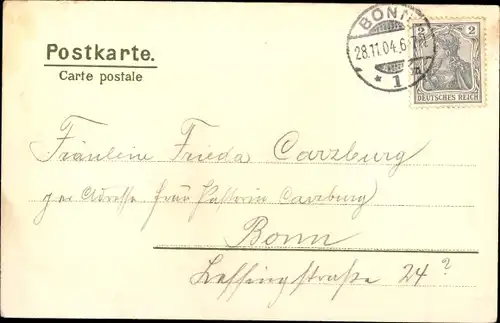 Postkarte.
Carte postale
BONN
28.11.04.6-7N.
* 1 a
2 2
DEUTSCHES REICH
Fräulein Frieda Carzburg
per Adresse Frau Pastorin Carzburg
Bonn
Lessingstraße 24?